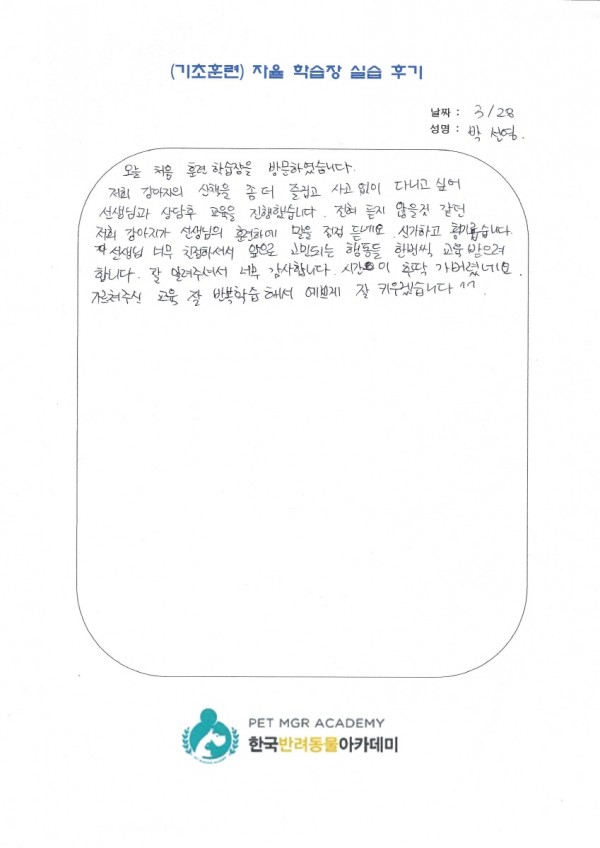 (기초훈련) 자율 학습장 실습 후기
날짜 : 3/28
성명 : 박 선영.
오늘 처음 훈련 학습장을 방문하였습니다.
저희 강아지의 산책을 좀 더 즐겁고 사고 없이 다니고 싶어
선생님과 상담후 교육을 진행했습니다. 전혀 듣지 않을것 같던
저희 강아지가 선생님의 훈련하에 말을 점점 듣네요. 신기하고 향기롭습니다.
선생님 너무 친절하셔서 앞으로 고민되는 행동들 한번씩 교육 받으려
합니다. 잘 알려주셔서 너무 감사합니다. 시간이 후딱 가버렸네요.
가르쳐주신 교육 잘 반복학습 해서 예쁘게 잘 키우겠습니다 ^^.
PET MGR ACADEMY
한국반려동물아카데미